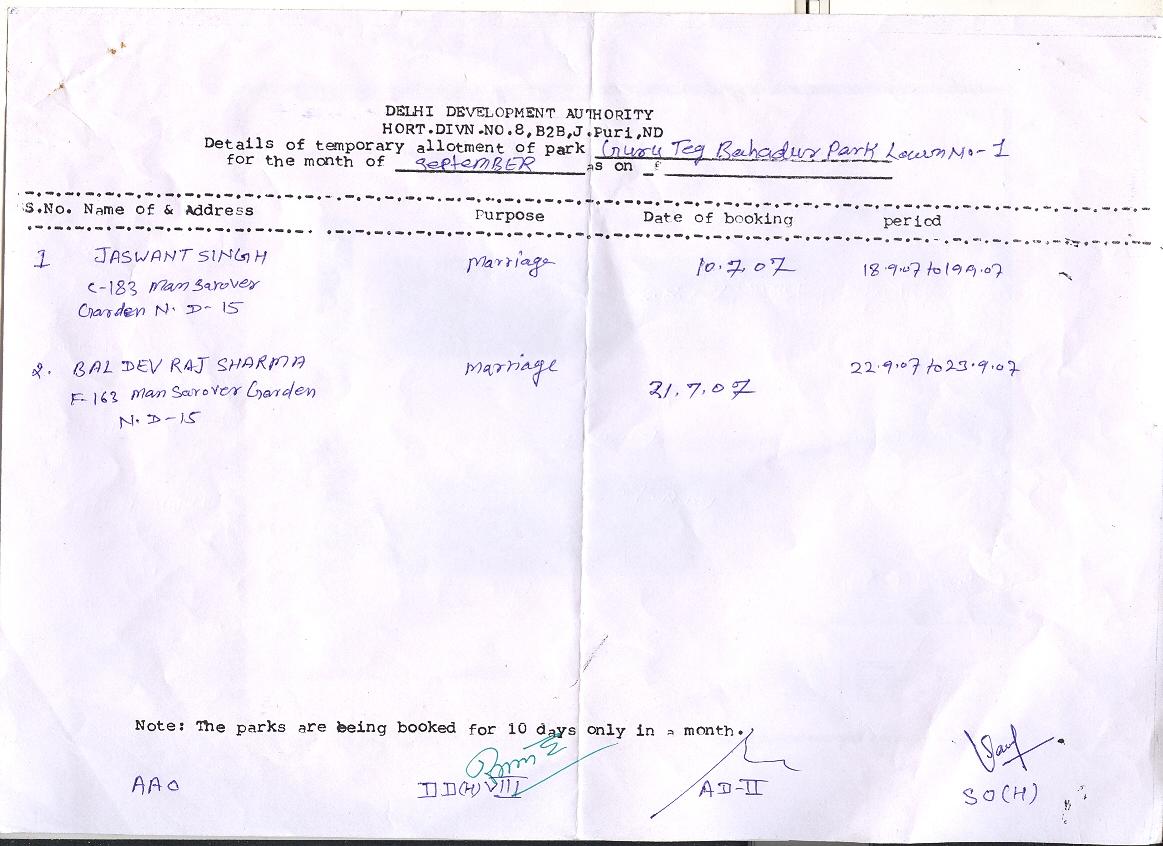 DELHI DEVELOPMENT AUTHORITY
HORT.DIVN.NO.8,B2B,J.Puri,ND
Details of temporary allotment of park Guru Teg Bahadur Park Lawn No-1
for the month of SepteMBER as on
S.No. Name of & Address Purpose Date of booking period
1 JASWANT SINGH Marriage 10.7.07 18.9.07 to 19 9.07
C-183 Man Sarover
Garden N.D-15
2. BAL DEV RAJ SHARMA Marriage 22.9.07 to 23.9.07
F-163 Man Sarover Garden 21.7.07
N.D-15
Note: The parks are being booked for 10 days only in a month.
AAO DD(H) VIII AD-II SO(H)